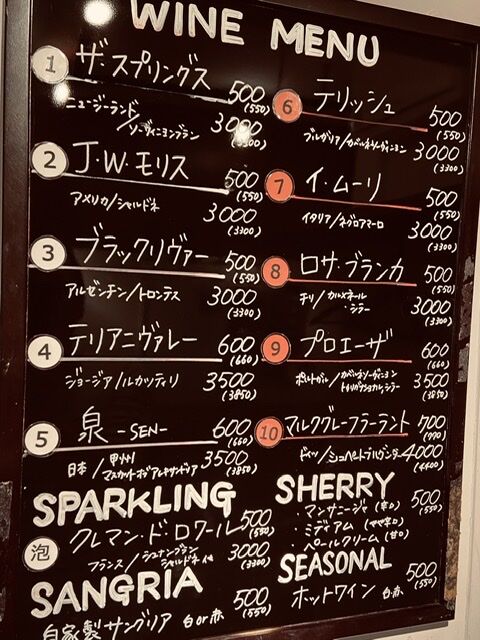 WINE MENU
1 ザ・スプリングス 500 (550)
ニュージーランド/ソーヴィニヨンブラン 3000 (3300)
2 J.W.モリス 500 (550)
アメリカ/シャルドネ 3000 (3300)
3 ブラックリヴァー 500 (550)
アルゼンチン/トロンテス 3000 (3300)
4 テリアニヴァレー 600 (660)
ジョージア/ルカツィテリ 3500 (3850)
5 泉 -SEN- 600 (660)
日本/甲州 3500 (3850)
SPARKLING
泡 クレマン・ド・ロワール 500 (550)
フランス/シュナンブラン シャルドネ 他 3000 (3300)
SANGRIA
自家製サングリア 白or赤 500 (550)
6 テリッシュ 500 (550)
ブルガリア/カベルネソーヴィニヨン 3000 (3300)
7 イ・ムーリ 500 (550)
イタリア/ネグロアマーロ 3000 (3300)
8 ロサ・ブランカ 500 (550)
チリ/カルメネール・シラー 3000 (3300)
9 プロエーザ 600 (660)
ポルトガル/カベルネソーヴィニヨン 3500 (3850)
10 マルクグレーフラーラント 700 (770)
ドイツ/シュペートブルグンダー 4000 (4400)
SHERRY
・マンサニージャ(辛口) 500 (550)
・ミディアム(やや辛口)
・ペールクリーム(甘口)
SEASONAL
ホットワイン 白・赤 500 (550)